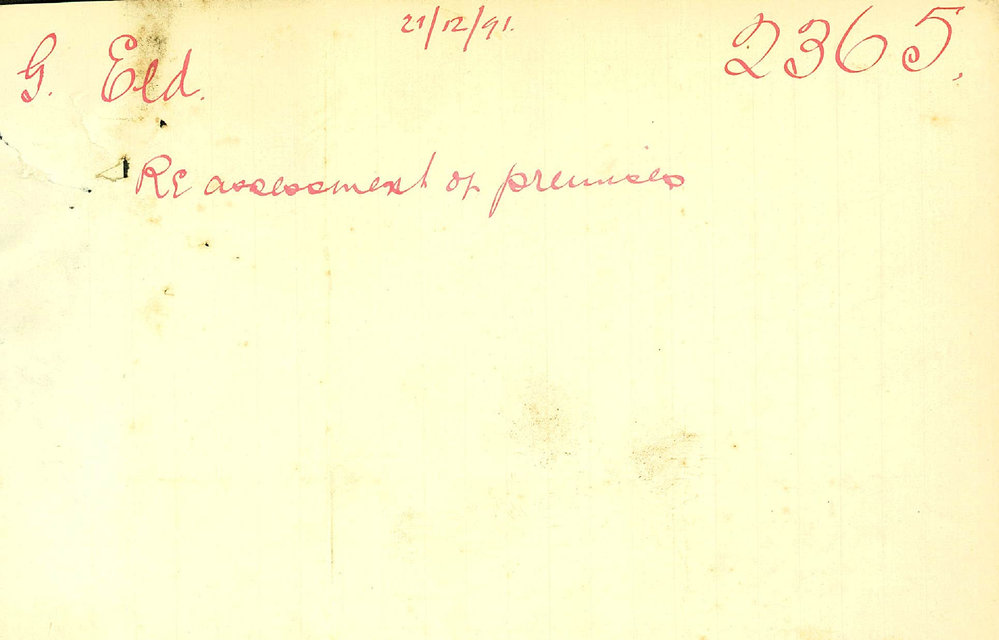 21/12/91.
2365.
G. Eld.
Re assessment of premises